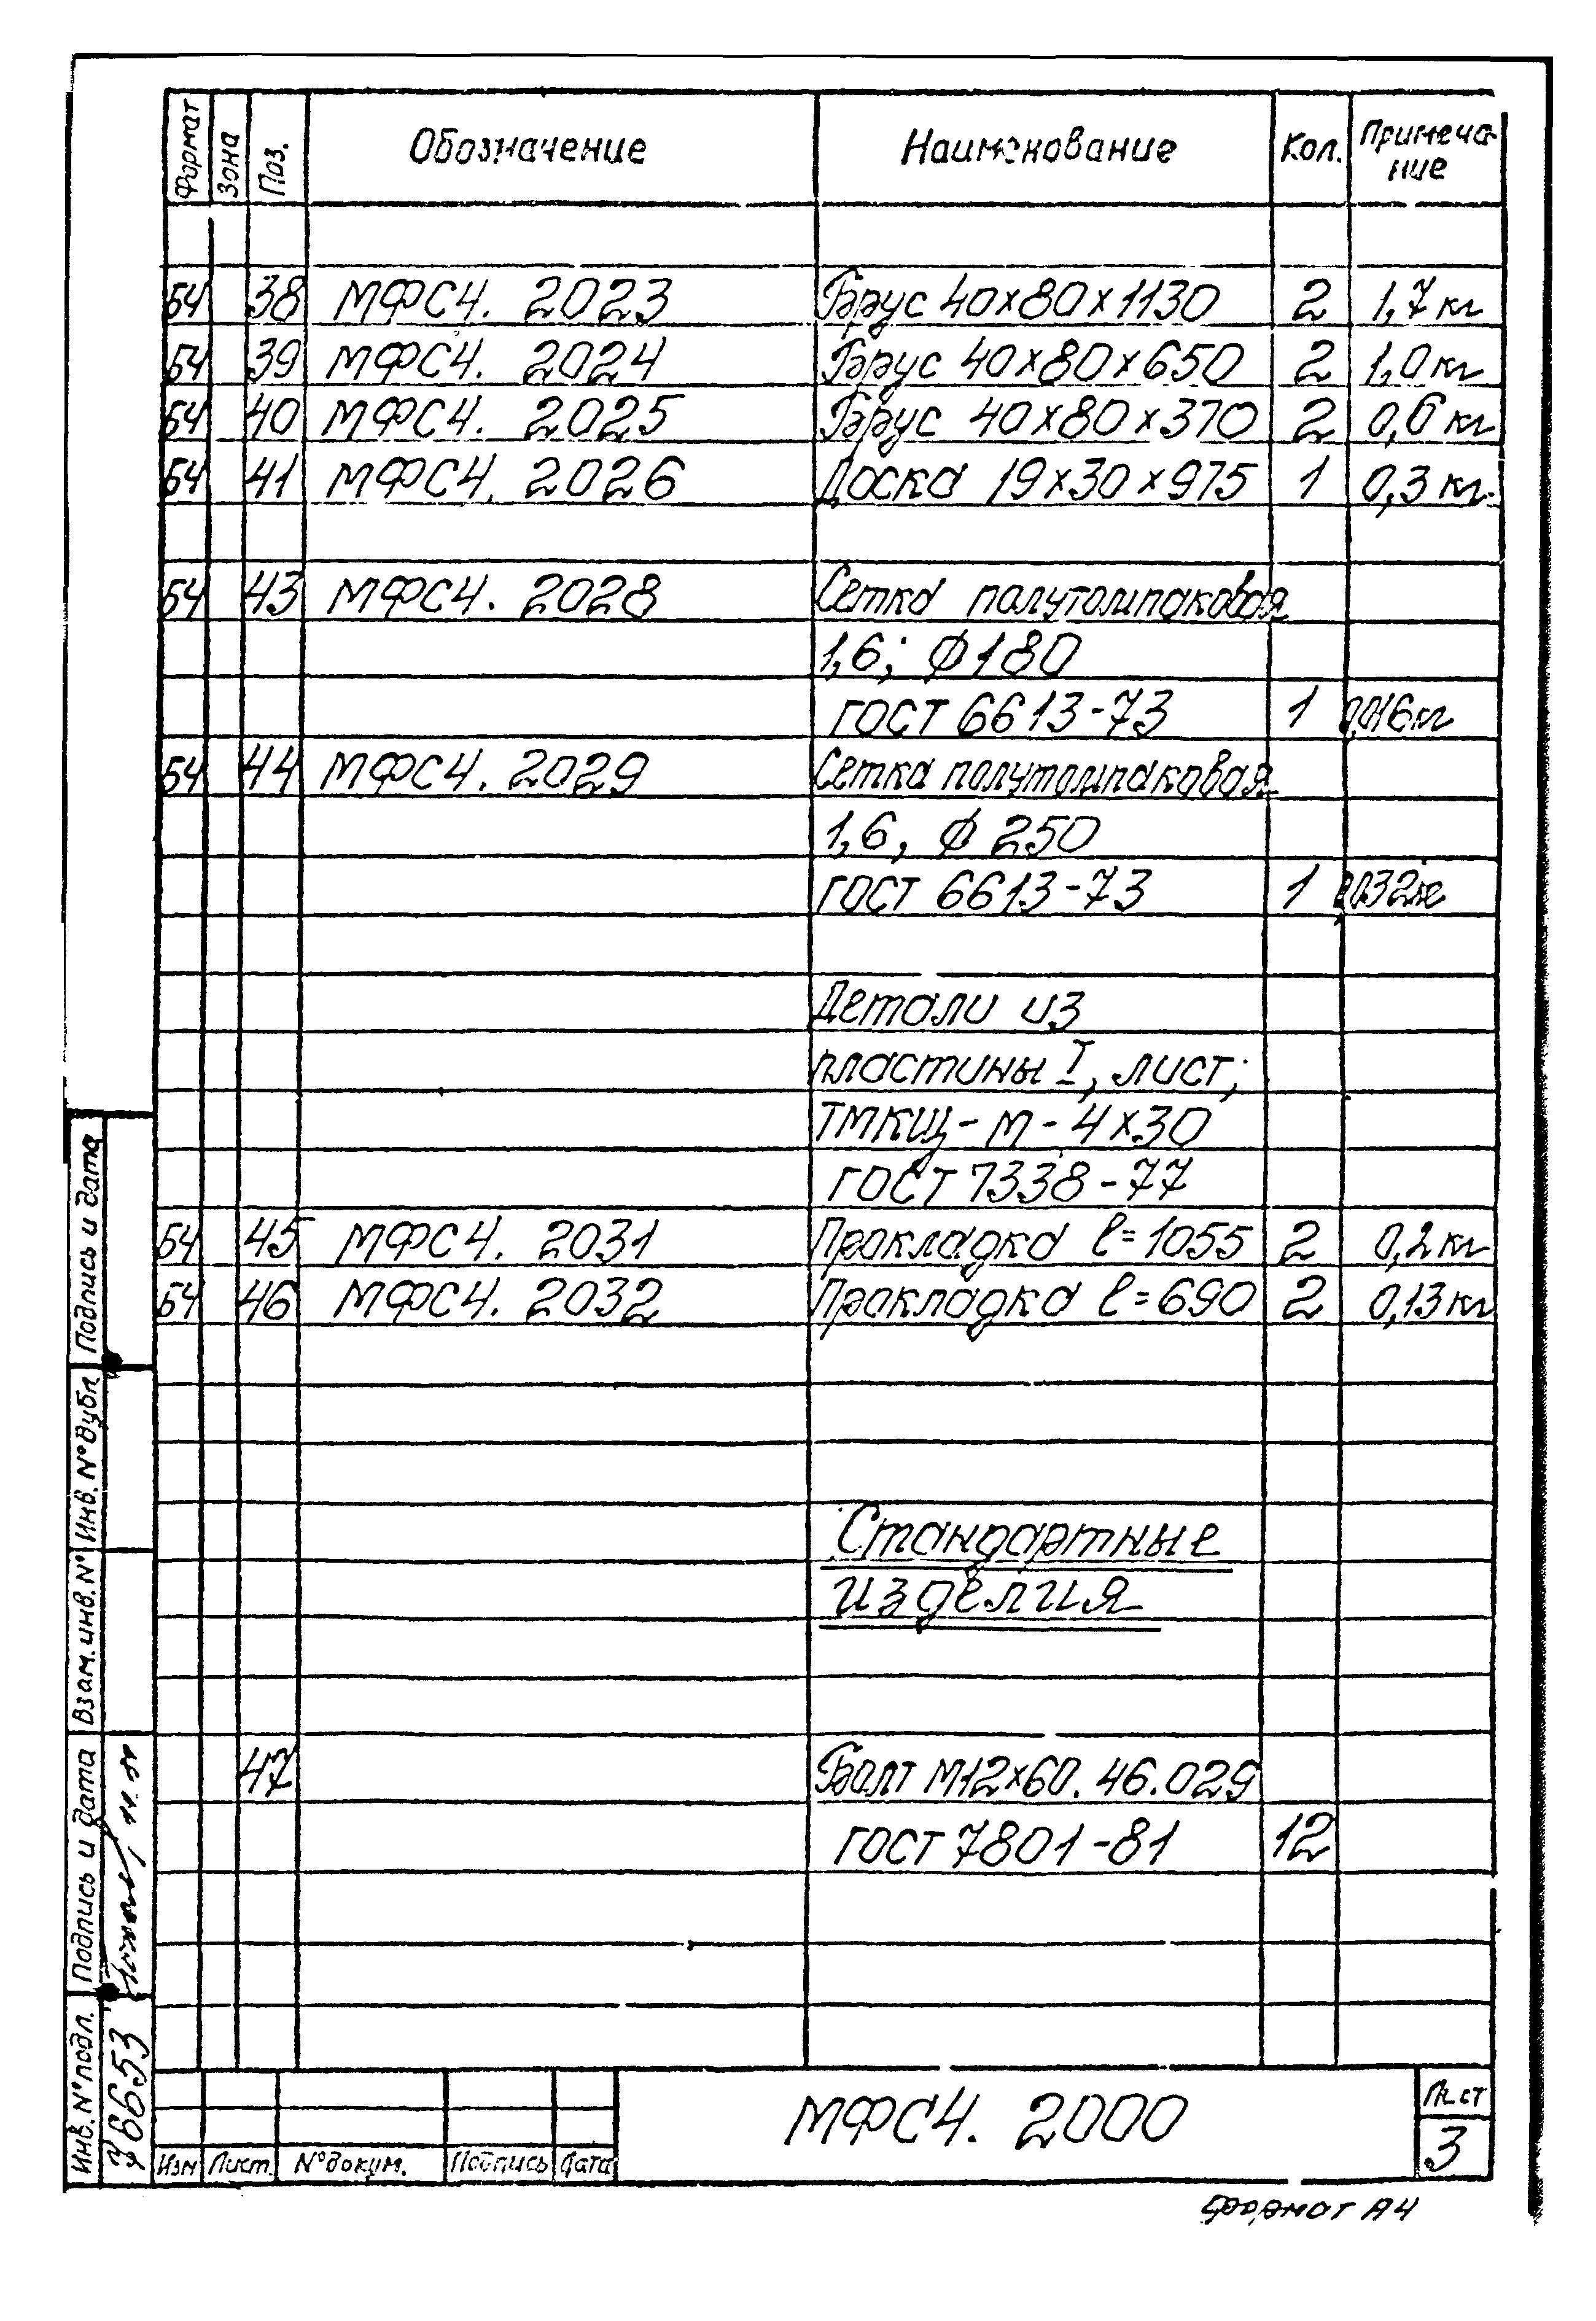 Формат Зона Поз. Обозначение Наименование Кол. Примеча-
ние
БЧ 38 МФС4. 2023 Брус 40х80х1130 2 1,7 кг
БЧ 39 МФС4. 2024 Брус 40х80х650 2 1,0 кг
БЧ 40 МФС4. 2025 Брус 40х80х370 2 0,6 кг
БЧ 41 МФС4. 2026 Доска 19х30х975 1 0,3 кг.
БЧ 43 МФС4. 2028 Сетка полутомпаковая
1,6; ф180
ГОСТ 6613-73 1 0,016кг
БЧ 44 МФС4. 2029 Сетка полутомпаковая
1,6, ф 250
ГОСТ 6613-73 1 0,032кг
Детали из
пластины I, лист;
ТМКЩ-М-4х30
ГОСТ 7338-77
БЧ 45 МФС4. 2031 Прокладка ℓ=1055 2 0,2 кг
БЧ 46 МФС4. 2032 Прокладка ℓ=690 2 0,13 кг
Стандартные
изделия
47 Болт М12х60. 46.029
ГОСТ 7801-81 12
Подпись и дата
Инв. № дубл.
Взам. инв. №
Подпись и дата
Инв. № подл.
46653
Изм Лист. № докум. Подпись Дата
МФС4. 2000
Лист
3
Формат А4